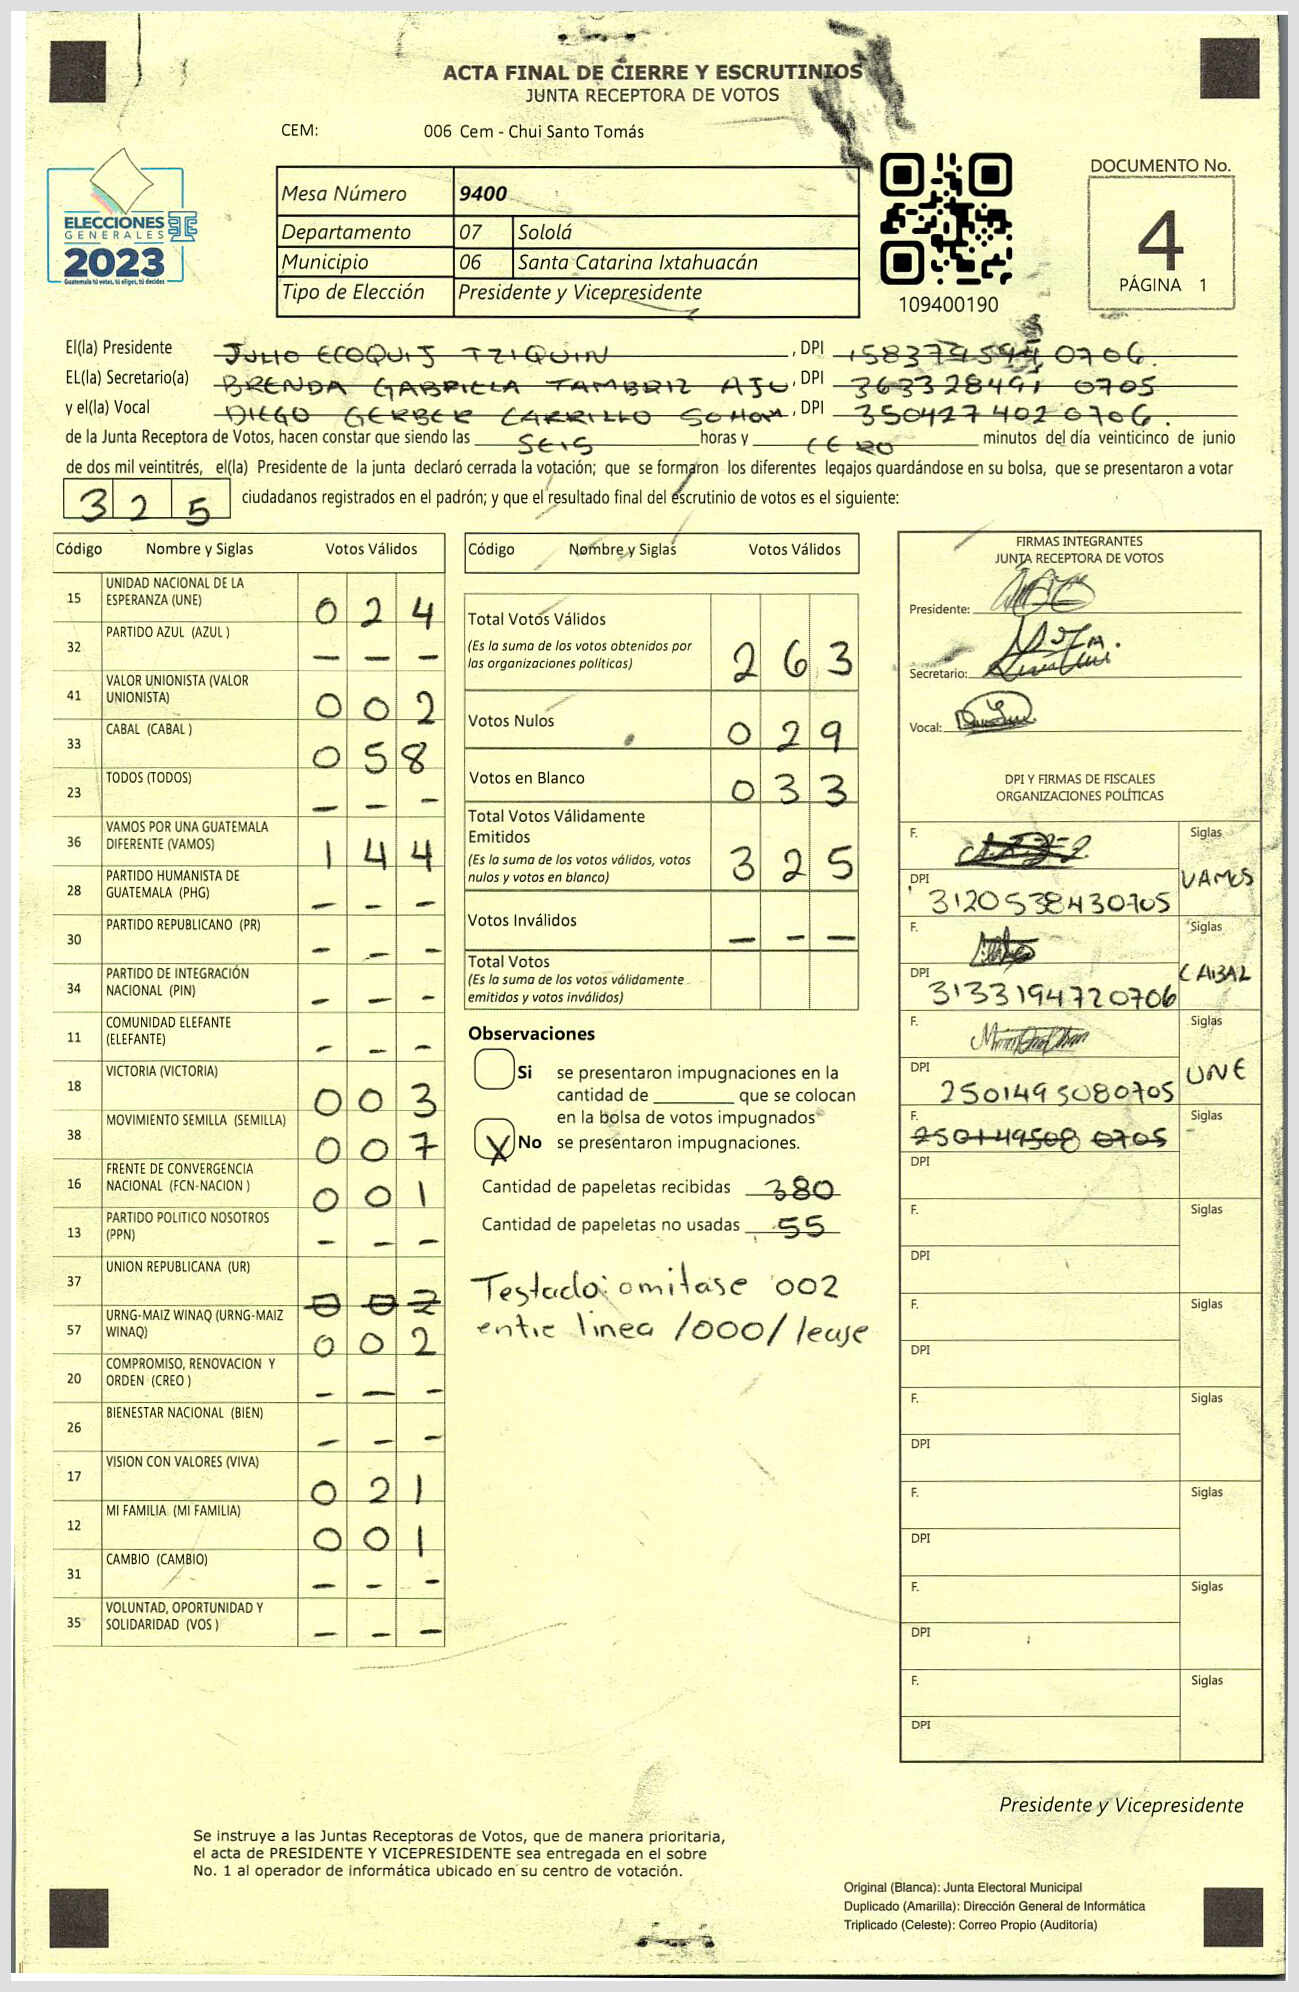 ACTA FINAL DE CIERRE Y ESCRUTINIOS
JUNTA RECEPTORA DE VOTOS
CEM: 006 Cem - Chui Santo Tomás
ELECCIONES
GENERALES
2023
Guatemala tú votas, tú eliges, tú decides
Mesa Número 9400
Departamento 07 Sololá
Municipio 06 Santa Catarina Ixtahuacán
Tipo de Elección Presidente y Vicepresidente
109400190
DOCUMENTO No.
4
PÁGINA 1
El(la) Presidente JULIO ECOQUIJ TZIQUIN, DPI
EL(la) Secretario(a) BRENDA GABRIELA TAMBRIZ AJU, DPI 363328491 0705
y el(la) Vocal DIEGO GERBER CARRILLO SOHOM, DPI 350427402 0706.
de la Junta Receptora de Votos, hacen constar que siendo las SEIS horas y CERO minutos del día veinticinco de junio
de dos mil veintitrés, el(la) Presidente de la junta declaró cerrada la votación; que se formaron los diferentes legajos guardándose en su bolsa, que se presentaron a votar
325 ciudadanos registrados en el padrón; y que el resultado final del escrutinio de votos es el siguiente:
Código Nombre y Siglas Votos Válidos
15 UNIDAD NACIONAL DE LA ESPERANZA (UNE) 024
32 PARTIDO AZUL (AZUL ) - - -
41 VALOR UNIONISTA (VALOR UNIONISTA) 002
33 CABAL (CABAL ) 058
23 TODOS (TODOS) - - -
36 VAMOS POR UNA GUATEMALA DIFERENTE (VAMOS) 144
28 PARTIDO HUMANISTA DE GUATEMALA (PHG) - - -
30 PARTIDO REPUBLICANO (PR) - - -
34 PARTIDO DE INTEGRACIÓN NACIONAL (PIN) - - -
11 COMUNIDAD ELEFANTE (ELEFANTE) - - -
18 VICTORIA (VICTORIA) 003
38 MOVIMIENTO SEMILLA (SEMILLA) 007
16 FRENTE DE CONVERGENCIA NACIONAL (FCN-NACION ) 001
13 PARTIDO POLITICO NOSOTROS (PPN) - - -
37 UNION REPUBLICANA (UR) 002
57 URNG-MAIZ WINAQ (URNG-MAIZ WINAQ) 002
20 COMPROMISO, RENOVACION Y ORDEN (CREO ) - - -
26 BIENESTAR NACIONAL (BIEN) - - -
17 VISION CON VALORES (VIVA) 021
12 MI FAMILIA (MI FAMILIA) 001
31 CAMBIO (CAMBIO) - - -
35 VOLUNTAD, OPORTUNIDAD Y SOLIDARIDAD (VOS ) - - -
Código Nombre y Siglas Votos Válidos
Total Votos Válidos 263
(Es la suma de los votos obtenidos por
las organizaciones políticas)
Votos Nulos 029
Votos en Blanco 033
Total Votos Válidamente
Emitidos 325
(Es la suma de los votos válidos, votos
nulos y votos en blanco)
Votos Inválidos - - -
Total Votos
(Es la suma de los votos válidamente
emitidos y votos inválidos)
Observaciones
Si se presentaron impugnaciones en la
cantidad de ________ que se colocan
en la bolsa de votos impugnados
X No se presentaron impugnaciones.
Cantidad de papeletas recibidas 380
Cantidad de papeletas no usadas 55
Testado: omitase 002
entre linea /000/ lease
FIRMAS INTEGRANTES
JUNTA RECEPTORA DE VOTOS
Presidente:
Secretario:
Vocal:
DPI Y FIRMAS DE FISCALES
ORGANIZACIONES POLÍTICAS
F. Siglas
DPI 3120538430705 VAMOS
F. Siglas
DPI 3133194720706 CABAL
F. Siglas
DPI 2501495080705 UNE
F. 250149508 0705 Siglas
DPI
F. Siglas
DPI
F. Siglas
DPI
F. Siglas
DPI
F. Siglas
DPI
F. Siglas
DPI
F. Siglas
DPI
Presidente y Vicepresidente
Se instruye a las Juntas Receptoras de Votos, que de manera prioritaria,
el acta de PRESIDENTE Y VICEPRESIDENTE sea entregada en el sobre
No. 1 al operador de informática ubicado en su centro de votación.
Original (Blanca): Junta Electoral Municipal
Duplicado (Amarilla): Dirección General de Informática
Triplicado (Celeste): Correo Propio (Auditoría)